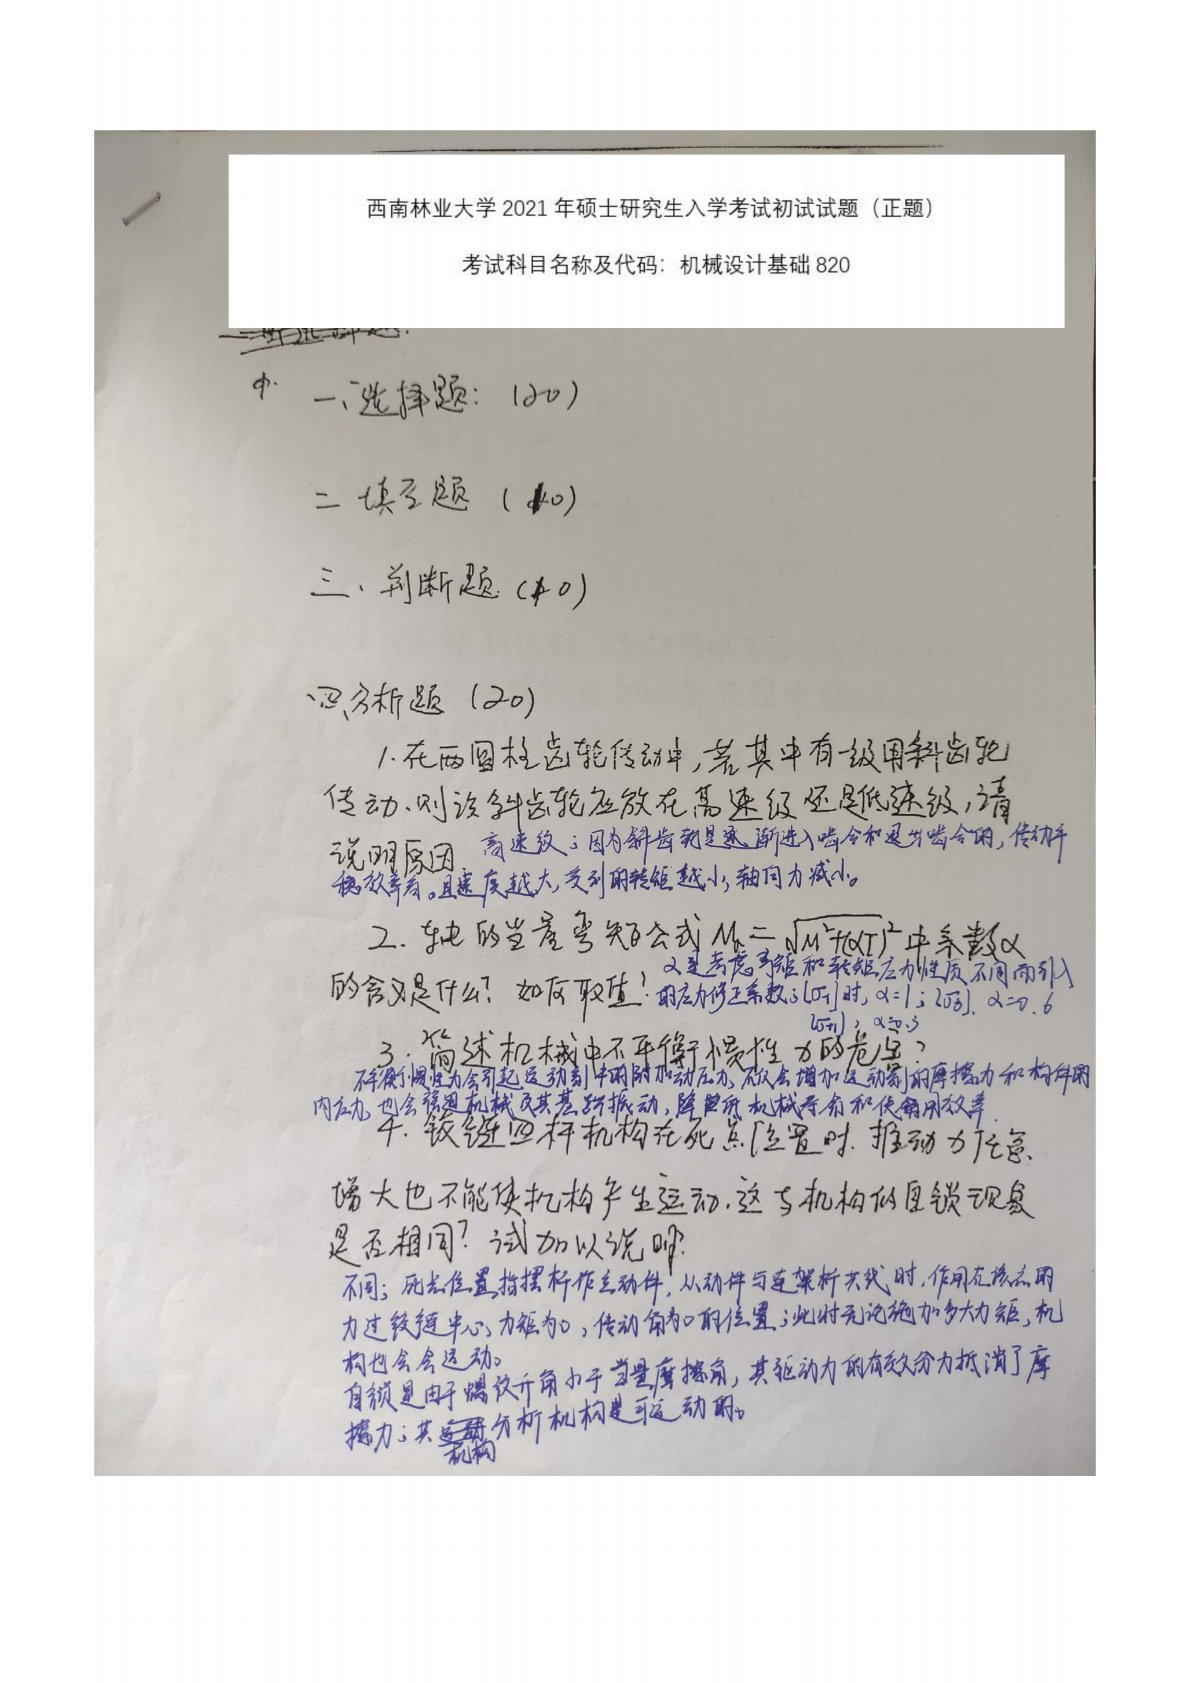 西南林业大学 2021 年硕士研究生入学考试初试试题（正题）
考试科目名称及代码：机械设计基础 820
一、选择题：(20)
二 填空题 (10)
三、判断题 (10)
四、分析题 (20)
1.在两圆柱齿轮传动中，若其中有一级用斜齿轮
传动.则该斜齿轮应放在高速级还是低速级，请
说明原因.
高速级；因为斜齿轮是逐渐进入啮合和退出啮合的，传动平
稳效率高。且速度越大，受到的转矩越小，轴向力减小。
2. 轴的当量弯矩公式 M = √M²+(αT)² 中系数α
的含义是什么？如何取值？
α是考虑弯矩和转矩应力性质不同而引入
的应力修正系数；[σ-1]时，α=1；[σ0]，α=0.6
[σ+1]，α=0.3
3. 简述机械中不平衡惯性力的危害？
不平衡惯性力会引起运动副中的附加动压力，不仅会增加运动副的摩擦力和构件的
内应力，也会强迫机械及其基础振动，降低机械寿命和使用效率
4. 铰链四杆机构在死点位置时.推动力任意
增大也不能使机构产生运动.这与机构的自锁现象
是否相同？试加以说明？
不同；死点位置指摆杆作主动件，从动件与连架杆共线时，作用在该点的
力过铰链中心，力矩为0，传动角为0的位置；此时无论施加多大力矩，机
构也会会运动。
自锁是由于螺纹升角小于当量摩擦角，其驱动力的有效分力抵消了摩
擦力；其分析机构是可运动的。
机构